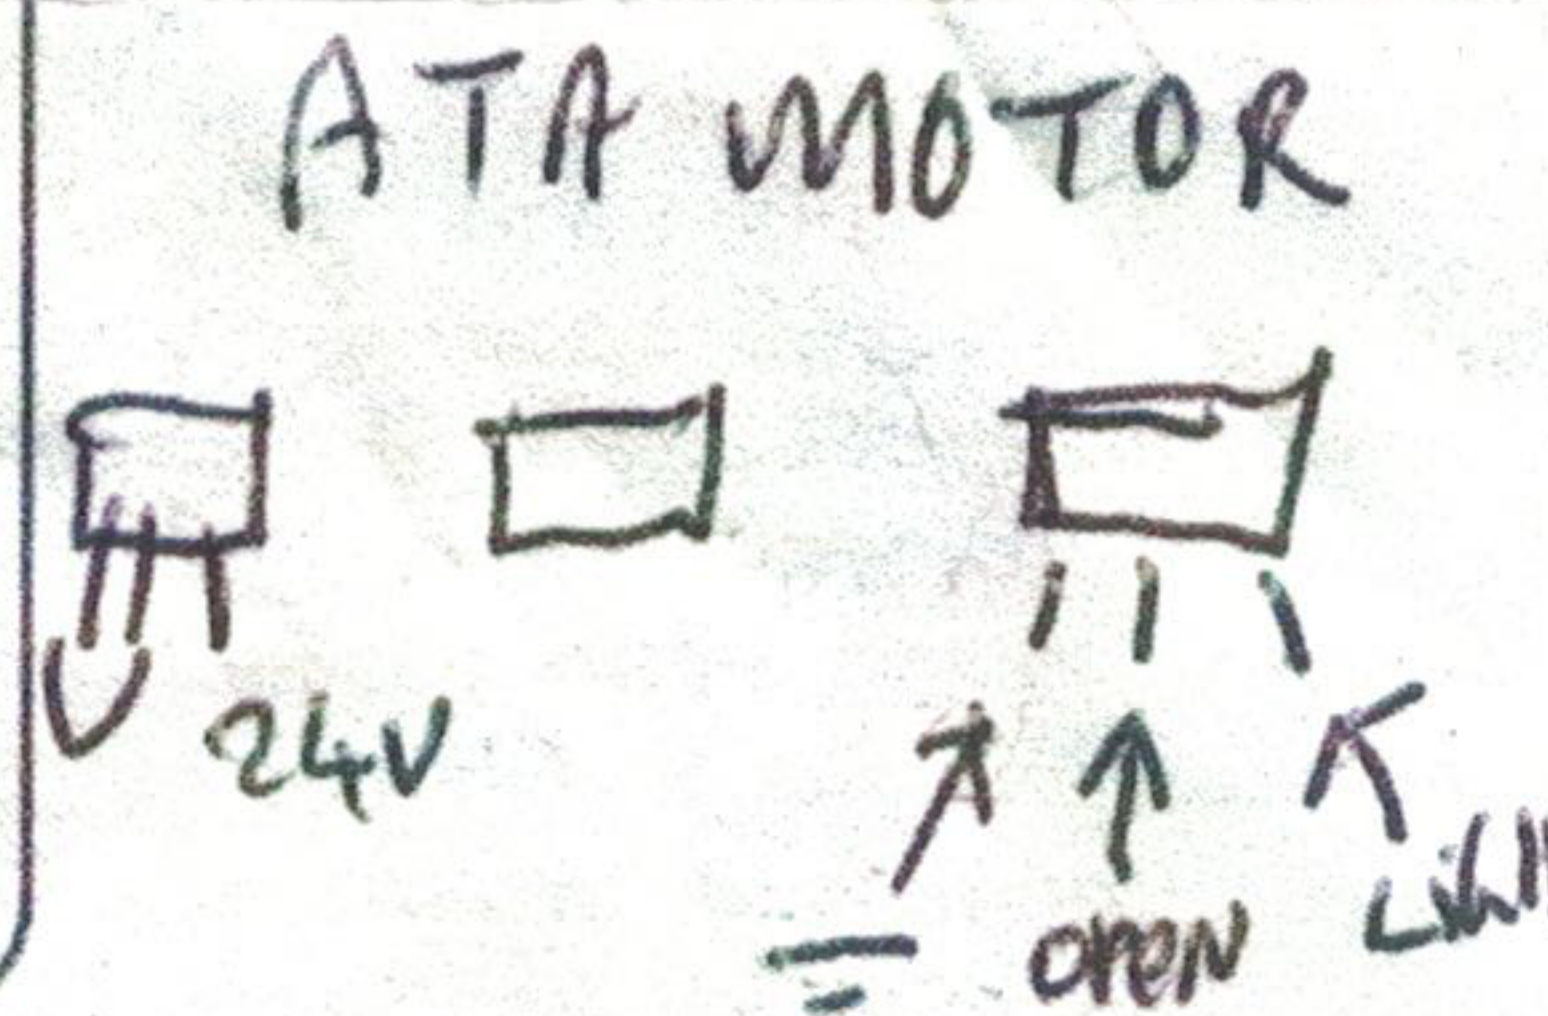 ATA MOTOR
24V
OPEN